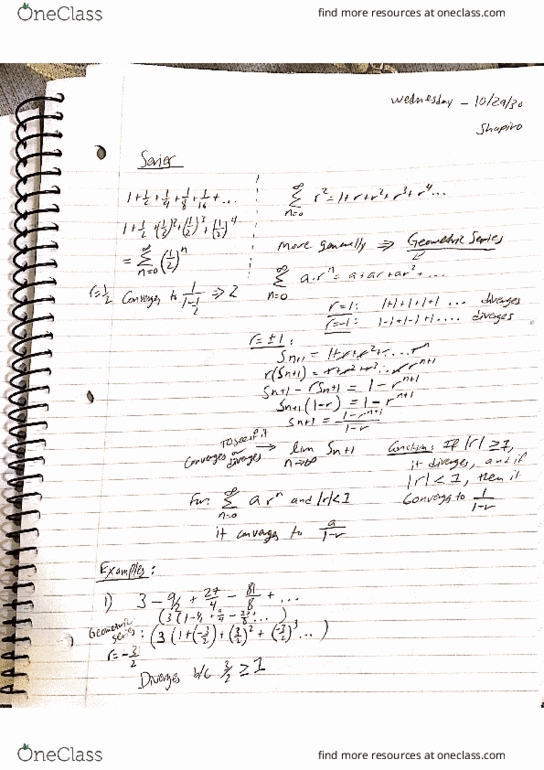 OneClass
find more resources at oneclass.com
Wednesday - 10/29/30
Shapiro
Series
1 + 1/2 + 1/4 + 1/8 + 1/16 + ...
1 + 1/2 + (1/2)^2 + (1/2)^3 + (1/2)^4
= ∑_{n=0}^{∞} (1/2)^n
r=1/2 Converges to 1/(1-1/2) ⇒ 2
∑_{n=0}^{∞} r^2 = 1+r+r^2+r^3+r^4...
More generally ⇒ Geometric Series
∑_{n=0}^{∞} a·r^n = a+ar+ar^2+...
r=1: 1+1+1+1+1 ... diverges
r=-1: 1-1+1-1+1.... diverges
r=±1:
S_{n+1} = 1+r+r^2+... r^n
r(S_{n+1}) = r+r^2+r^3... r^{n+1}
S_{n+1} - rS_{n+1} = 1 - r^{n+1}
S_{n+1}(1-r) = 1 - r^{n+1}
S_{n+1} = (1-r^{n+1})/(1-r)
To see if it
converges or diverges → lim_{n→∞} S_{n+1}
Conclusion: If |r| ≥ 1,
it diverges, and if
|r| < 1, then it
converges to 1/(1-r)
For: ∑_{n=0}^{∞} a r^n and |r|<1
it converges to a/(1-r)
Examples:
1) 3 - 9/2 + 27/4 - 81/8 + ...
Geometric series: (3(1+(-3/2)+(3/2)^2+(-3/2)^3...)
r=-3/2
Diverges b/c 3/2 ≥ 1
OneClass
find more resources at oneclass.com